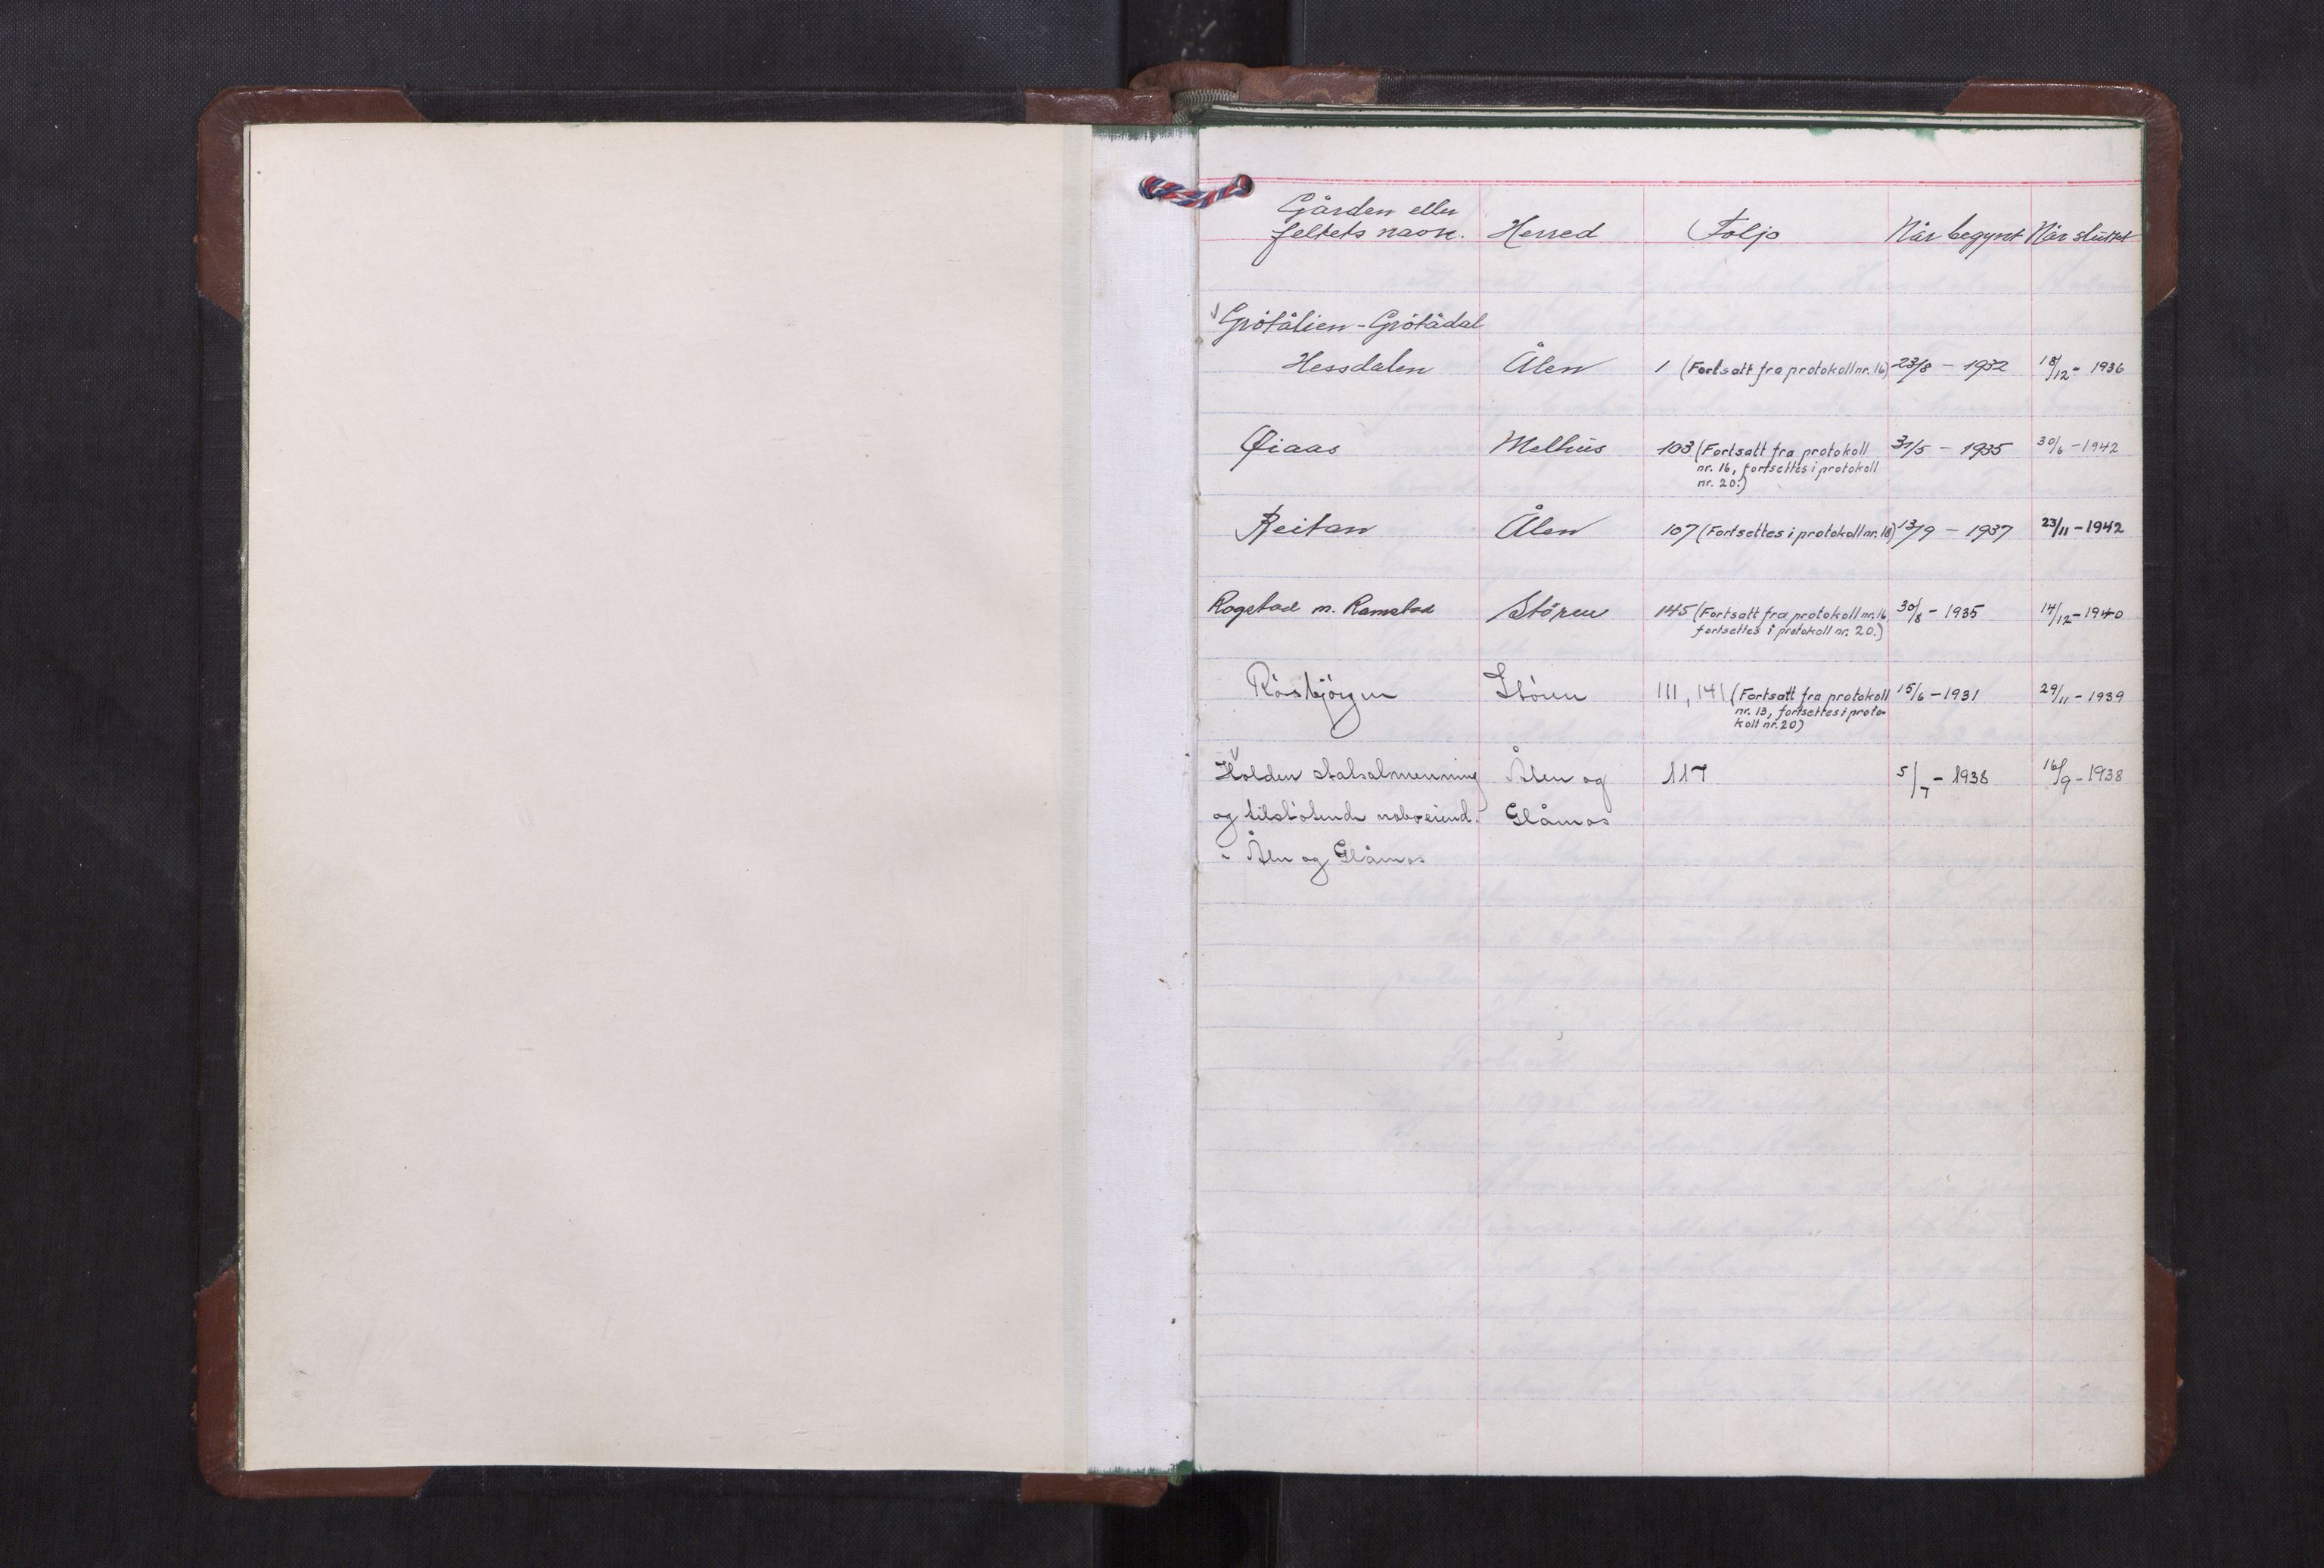 Gården eller
feltets navn. Herred Foljo Når begynt Når sluttet
Grötålien - Grötådal
Hessdalen Ålen 1 (Fortsatt fra protokoll nr. 16) 23/8 - 1932 18/12 - 1936
Øiaas Melhus 103 (Fortsatt fra protokoll 31/5 - 1935 30/6 - 1942
nr. 16, fortsettes i protokoll
nr. 20.)
Reitan Ålen 107 (Fortsettes i protokoll nr. 18) 13/9 - 1937 23/11 - 1942
Rogstad m. Ramstad Stören 145 (Fortsatt fra protokoll nr. 16 30/8 - 1935 14/12 - 1940
fortsettes i protokoll nr. 20.)
Rösbjörgen Stören 111, 141 (Fortsatt fra protokoll 15/6 - 1931 29/11 - 1939
nr. 13, fortsettes i proto-
koll nr. 20)
Holden statsalmenning Ålen og 117 5/7 - 1938 16/9 - 1938
og tilstötende naboeiend. Glåmos
i Ålen og Glåmos